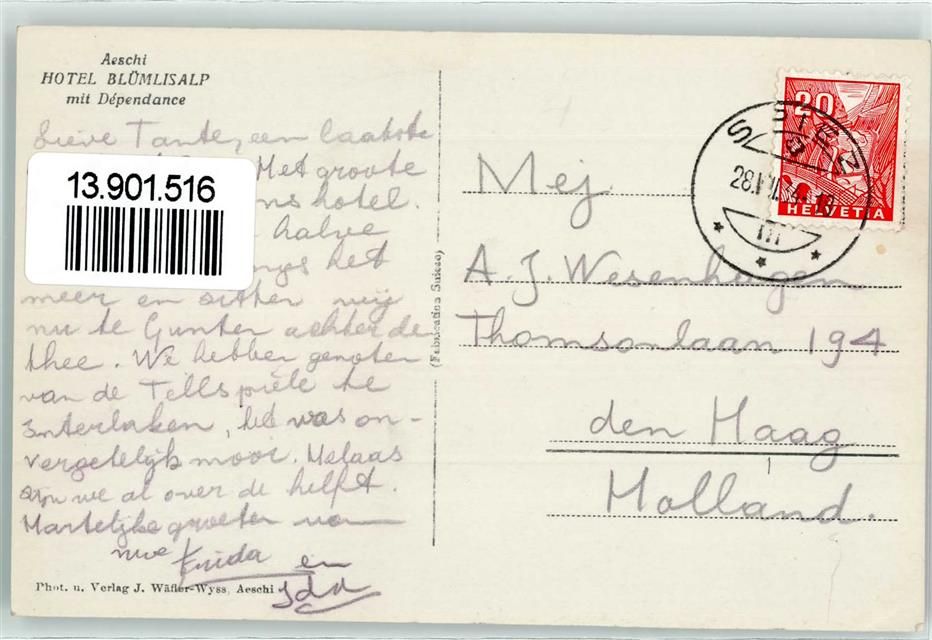 Aeschi
HOTEL BLÜMLISALP
mit Dépendance
Lieve Tante, een laatste
Met groote
hotel.
halve
het
meer en zitten wij
nu te Gunten achter de
thee. We hebben genoten
van de Tellspiele te
Interlaken, het was on-
vergetelijk mooi. Helaas
zijn we al over de helft.
Hartelijke groeten van
uwe Frida en
Ida
Phot. u. Verlag J. Wäfler-Wyss, Aeschi
13.901.516
(Fabrication Suisse)
20
HELVETIA
SPIEZ
Mej
A. J. Wesenhagen
Thomsonlaan 194
den Haag
Holland.